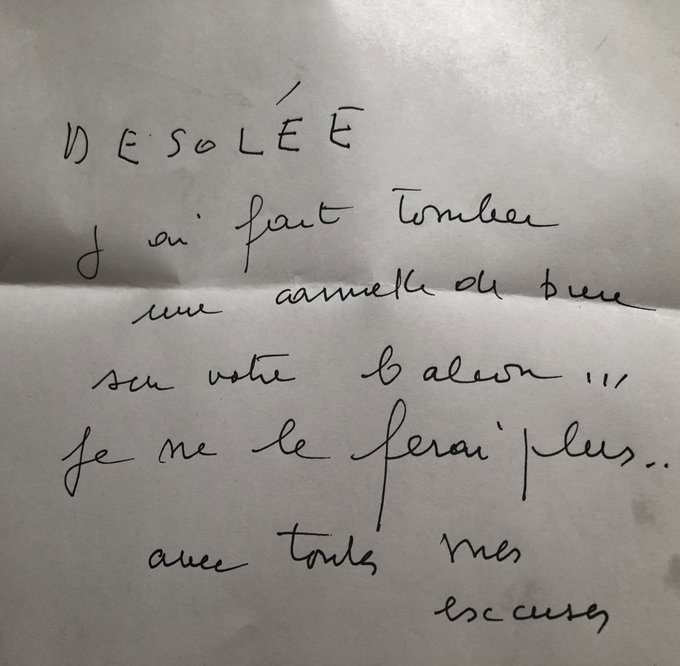 DESOLÉE
J ai fait tomber
une cannette de biere
sur votre balcon ...
Je ne le ferai plus..
avec toutes mes
excuses